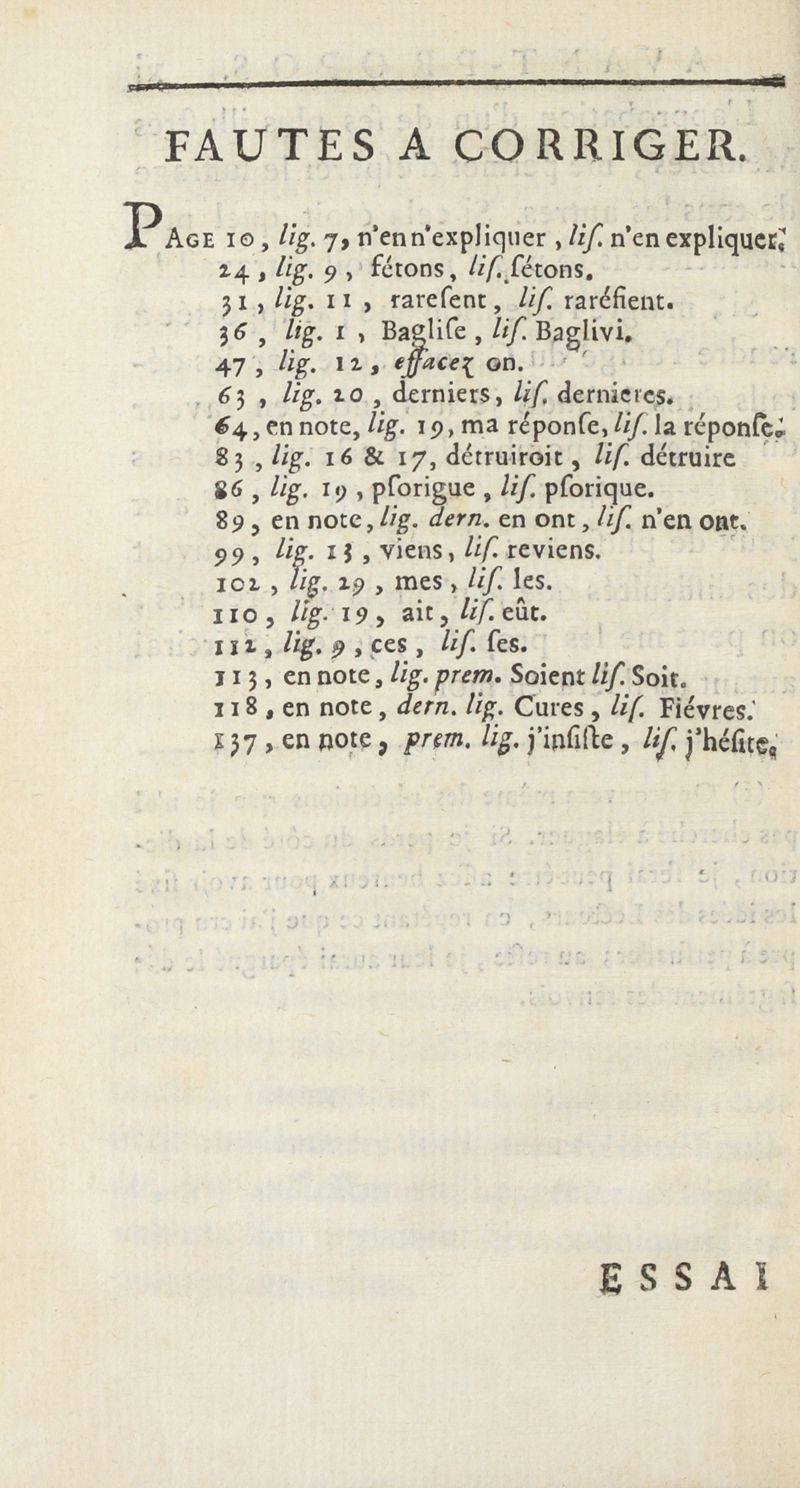 FAUTES A CORRIGER.
PAGE 10, lig. 7, n'en n'expliquer, liſ. n'en expliquer;
24, lig. 9, fétons, liſ. ſétons.
31, lig. 11, rareſent, liſ. raréfient.
36, lig. 1, Bagliſe, liſ. Baglivi.
47, lig. 12, effacez on.
63, lig. 20, derniers, liſ. dernieres.
64, en note, lig. 19, ma réponſe, liſ. la réponſe;
83, lig. 16 & 17, détruiroit, liſ. détruire
86, lig. 19, pſorigue, liſ. pſorique.
89, en note, lig. dern. en ont, liſ. n'en ont.
99, lig. 13, viens, liſ. reviens.
102, lig. 29, mes, liſ. les.
110, lig. 19, ait, liſ. eût.
112, lig. 9, ces, liſ. ſes.
113, en note, lig. prem. Soient liſ. Soit.
118, en note, dern. lig. Cures, liſ. Fiévres.
137, en note, prem. lig. j'inſiſte, liſ. j'héſite,
ESSAI